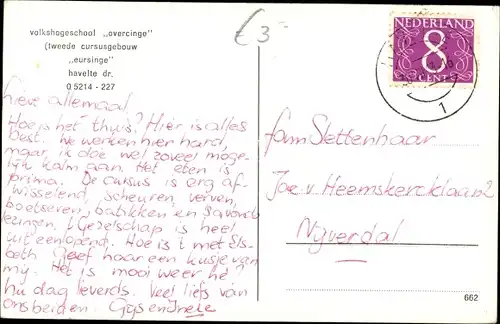 volkshogeschool „overcinge"
(tweede cursusgebouw
„eursinge"
havelte dr.
0 5214 - 227
€3-
NEDERLAND
8
CENT
1
Lieve allemaal
Hoe is het thuis? Hier is alles
best. We werken hier hard,
maar ik doe wel zoveel moge-
lijk kalm aan. Het eten is
prima. De cursus is erg af-
wisselend, scheuren, verven,
boetseren, batikken en 's avonds
lezingen. 't Gezelschap is heel
uiteenlopend. Hoe is 't met Els-
beth Geef haar een kusje van
mij. Het is mooi weer hè?
nu dag lieverds. Veel liefs van
ons beiden. Gijs en
fam Slettenhaar
Joe v Heemskercklaan 2
Nijverdal
662